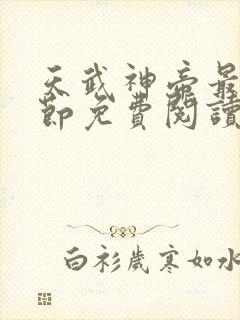 天武神帝最
節免費閱讀
白衫歲寒如水